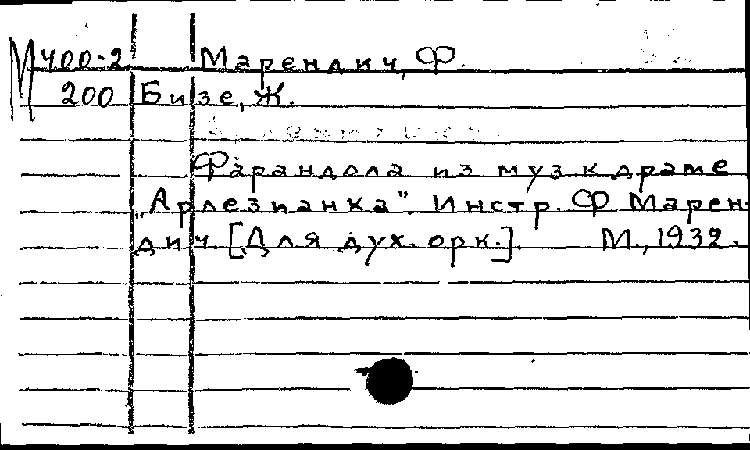 М 400-2 Марендич, Ф.
200 Бизе, Ж.
Фарандола из муз к драме
„Арлезианка". Инстр. Ф Марен-
дич. [Для дух. орк.]. М., 1932.